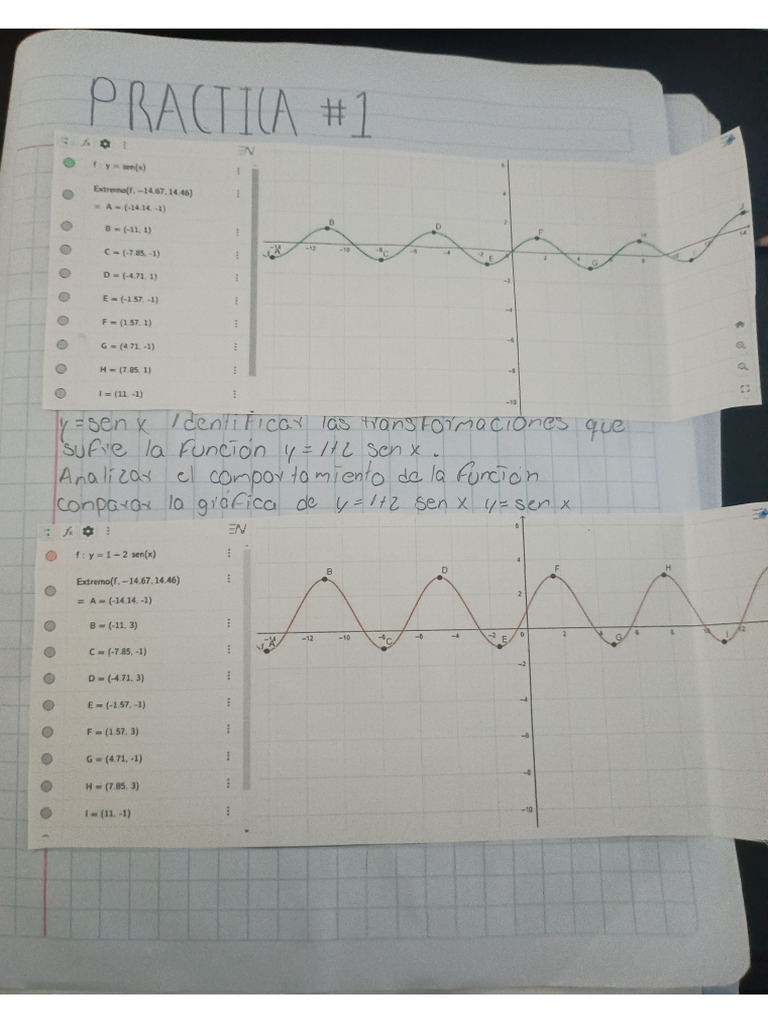 PRACTICA #1
f : y = sen(x)
Extremo(f, −14.67, 14.46)
= A = (-14.14, -1)
B = (-11, 1)
C = (-7.85, -1)
D = (-4.71, 1)
E = (-1.57, -1)
F = (1.57, 1)
G = (4.71, -1)
H = (7.85, 1)
I = (11, -1)
B
D
F
A
C
E
G
6
4
2
−2
−4
−6
−8
−10
−14
−12
−10
−8
−6
−4
−2
2
4
6
8
y=sen x Identificar las transformaciones que
sufre la función y=1+2 sen x.
Analizar el comportamiento de la función
comparar la gráfica de y=1+2 sen x y=sen x
f : y = 1 − 2 sen(x)
Extremo(f, −14.67, 14.46)
= A = (-14.14, -1)
B = (-11, 3)
C = (-7.85, -1)
D = (-4.71, 3)
E = (-1.57, -1)
F = (1.57, 3)
G = (4.71, -1)
H = (7.85, 3)
I = (11, -1)
B
D
F
H
A
C
E
G
I
6
4
2
−2
−4
−6
−8
−10
−14
−12
−10
−8
−6
−4
−2
0
2
4
6
8
10
12